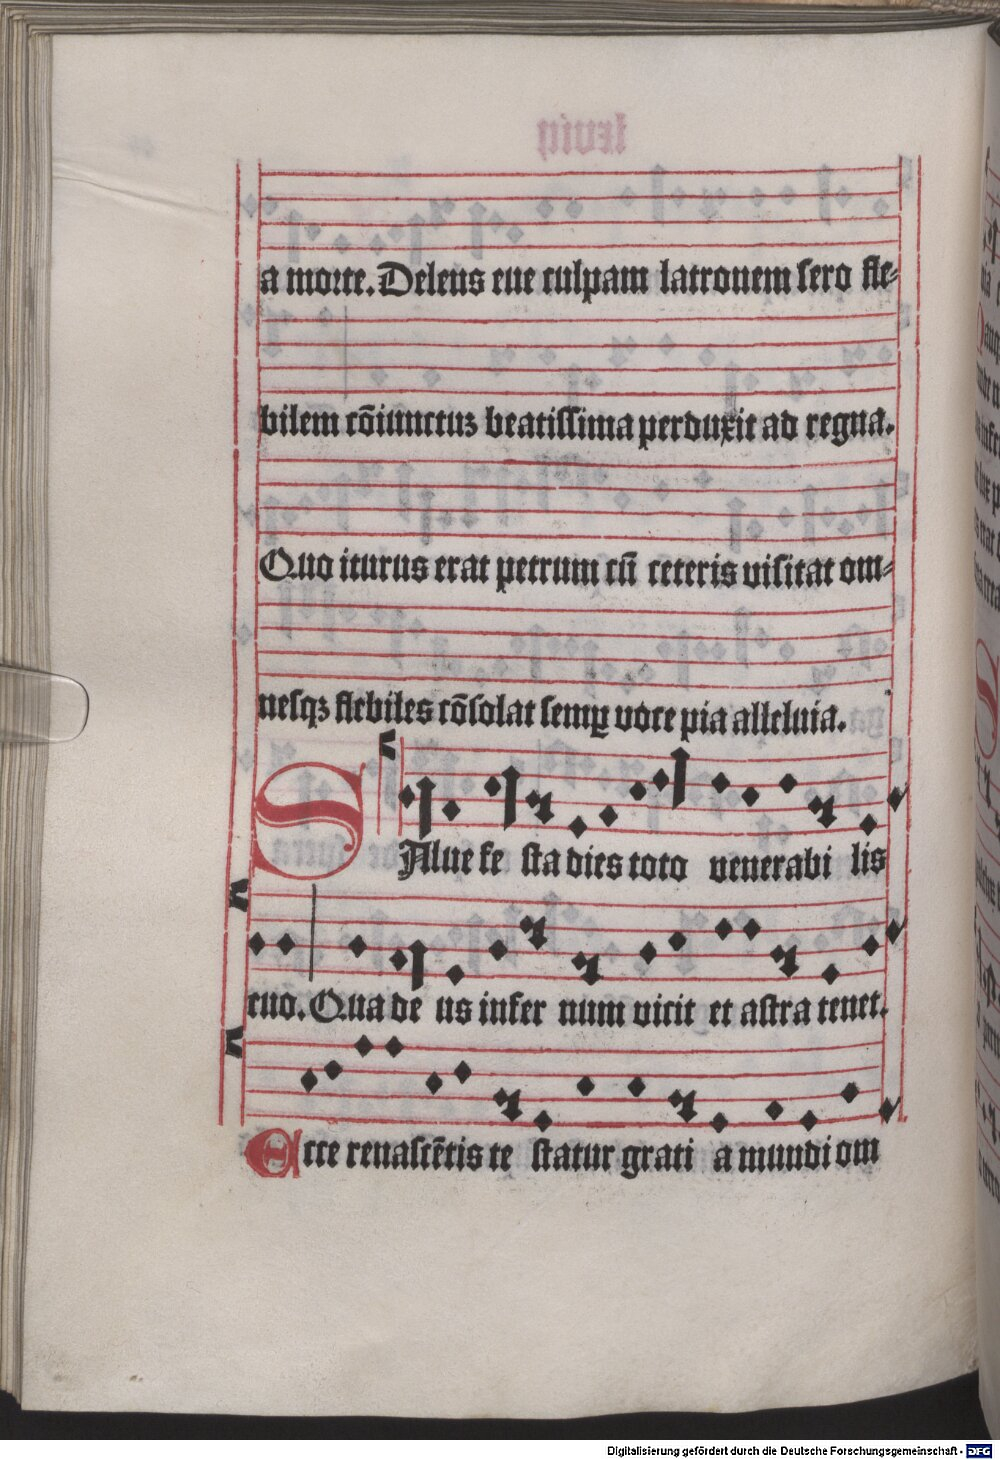 a morte. Delens eue culpam latronem sero fle-
bilem cōiunctuꝫ beatissima perduxit ad regna.
Quo iturus erat petrum cū ceteris visitat om-
nesqꝫ flebiles cōsolat semꝑ voce pia alleluia.
SAlue fe sta dies toto venerabi lis
euo. Qua de us infer num vicit et astra tenet.
Ecce renascētis te statur grati a mundi om
Digitalisierung gefördert durch die Deutsche Forschungsgemeinschaft - DFG